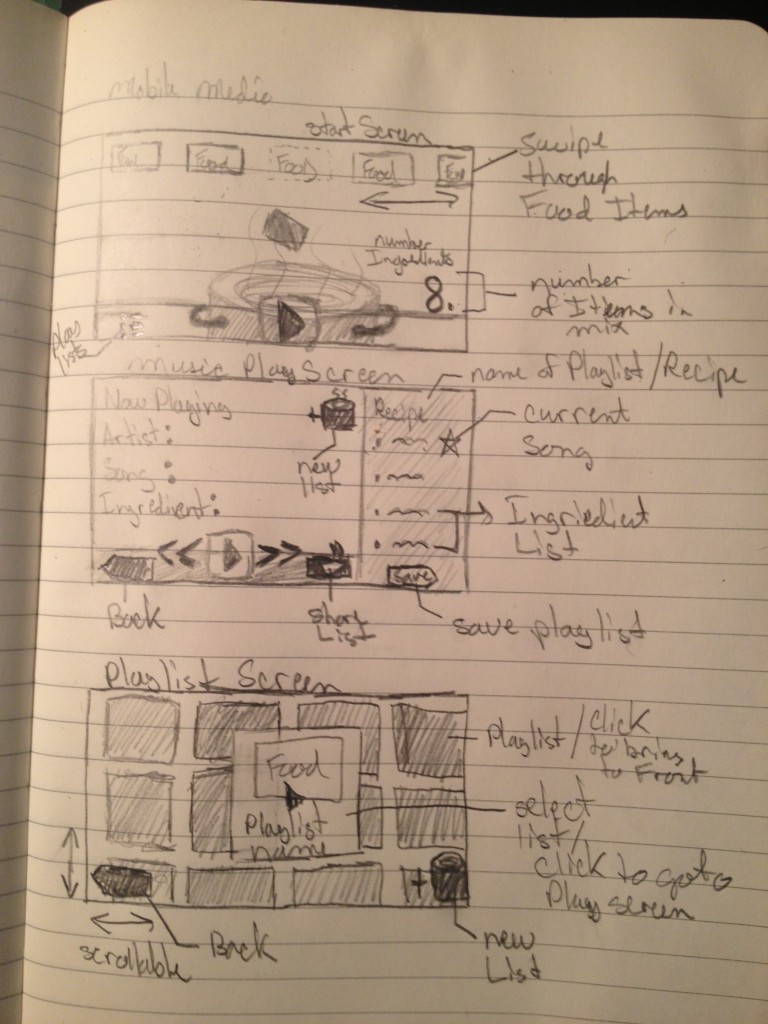 Mobile Media
start Screen
Food Food Food Food Food
swipe
through
Food Items
number
Ingredients
8.
number
of Items in
mix
play
lists
Music Play Screen
name of Playlist/Recipe
Now Playing
Recipe
Artist:
new
list
current
song
Song:
Ingredient:
Ingriedient
List
save
Back
share
List
save playlist
Playlist Screen
Playlist/click
to bring
to Front
Food
Playlist
name
select
list/
click to go to
Play screen
scrollable
Back
new
List